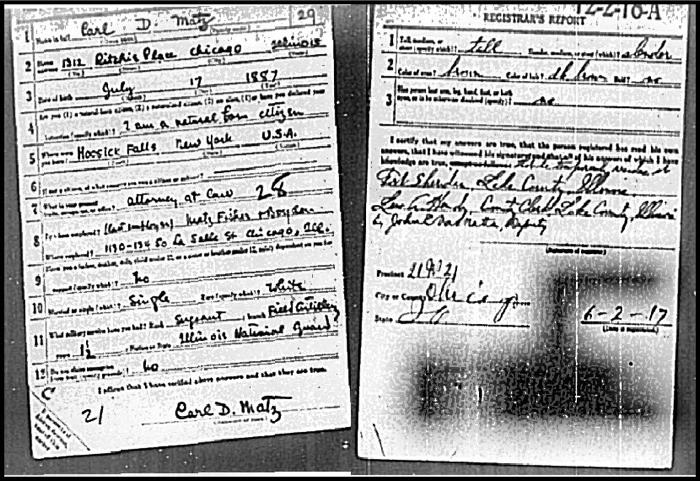 Carl D. Matz 29
1 Name in full
2 Home address 1312 Ritchie Place Chicago Illinois
3 Date of birth July 17 1887
Are you (1) a natural born citizen, (2) a naturalized citizen, (3) an alien, (4) or have you declared your
4 intention (specify which)? I am a natural born citizen
5 Where were you born? Hoosick Falls New York U.S.A.
6 If not a citizen, of what country are you a citizen or subject?
7 What is your present trade, occupation, or office? Attorney at Law 28
8 By whom employed? (last employer) Matz Fisher & Boyden
Where employed? 1130-134 So La Salle St Chicago, Ill.
9 Have you a father, mother, wife, child under 12, or a sister or brother under 12, solely dependent on you for
support (specify which)? No
10 Married or single (which)? Single Race (specify which)? White
11 What military service have you had? Rank Sergeant branch Field Artillery
years 1½ Nation or State Illinois National Guard
12 Do you claim exemption from draft (specify grounds)? No
I affirm that I have verified above answers and that they are true.
21
Carl D. Matz
12-2-16-A
REGISTRAR'S REPORT
1 Tall, medium, or short (specify which)? tall Slender, medium, or stout (which)? slender
2 Color of eyes? brown Color of hair? dk brown Bald? no
3 Has person lost arm, leg, hand, foot, or both
eyes, or is he otherwise disabled (specify)? no
I certify that my answers are true, that the person registered has read his own
answers, that I have witnessed his signature, and that all of his answers of which I have
knowledge are true,
Fort Sheridan, Lake County, Illinois
Lew A. Hendy, County Clerk Lake County, Illinois
by John Deputy
(Signature of registrar)
Precinct 21
City or County Chicago
State Ill
6-2-17
(Date of registration)